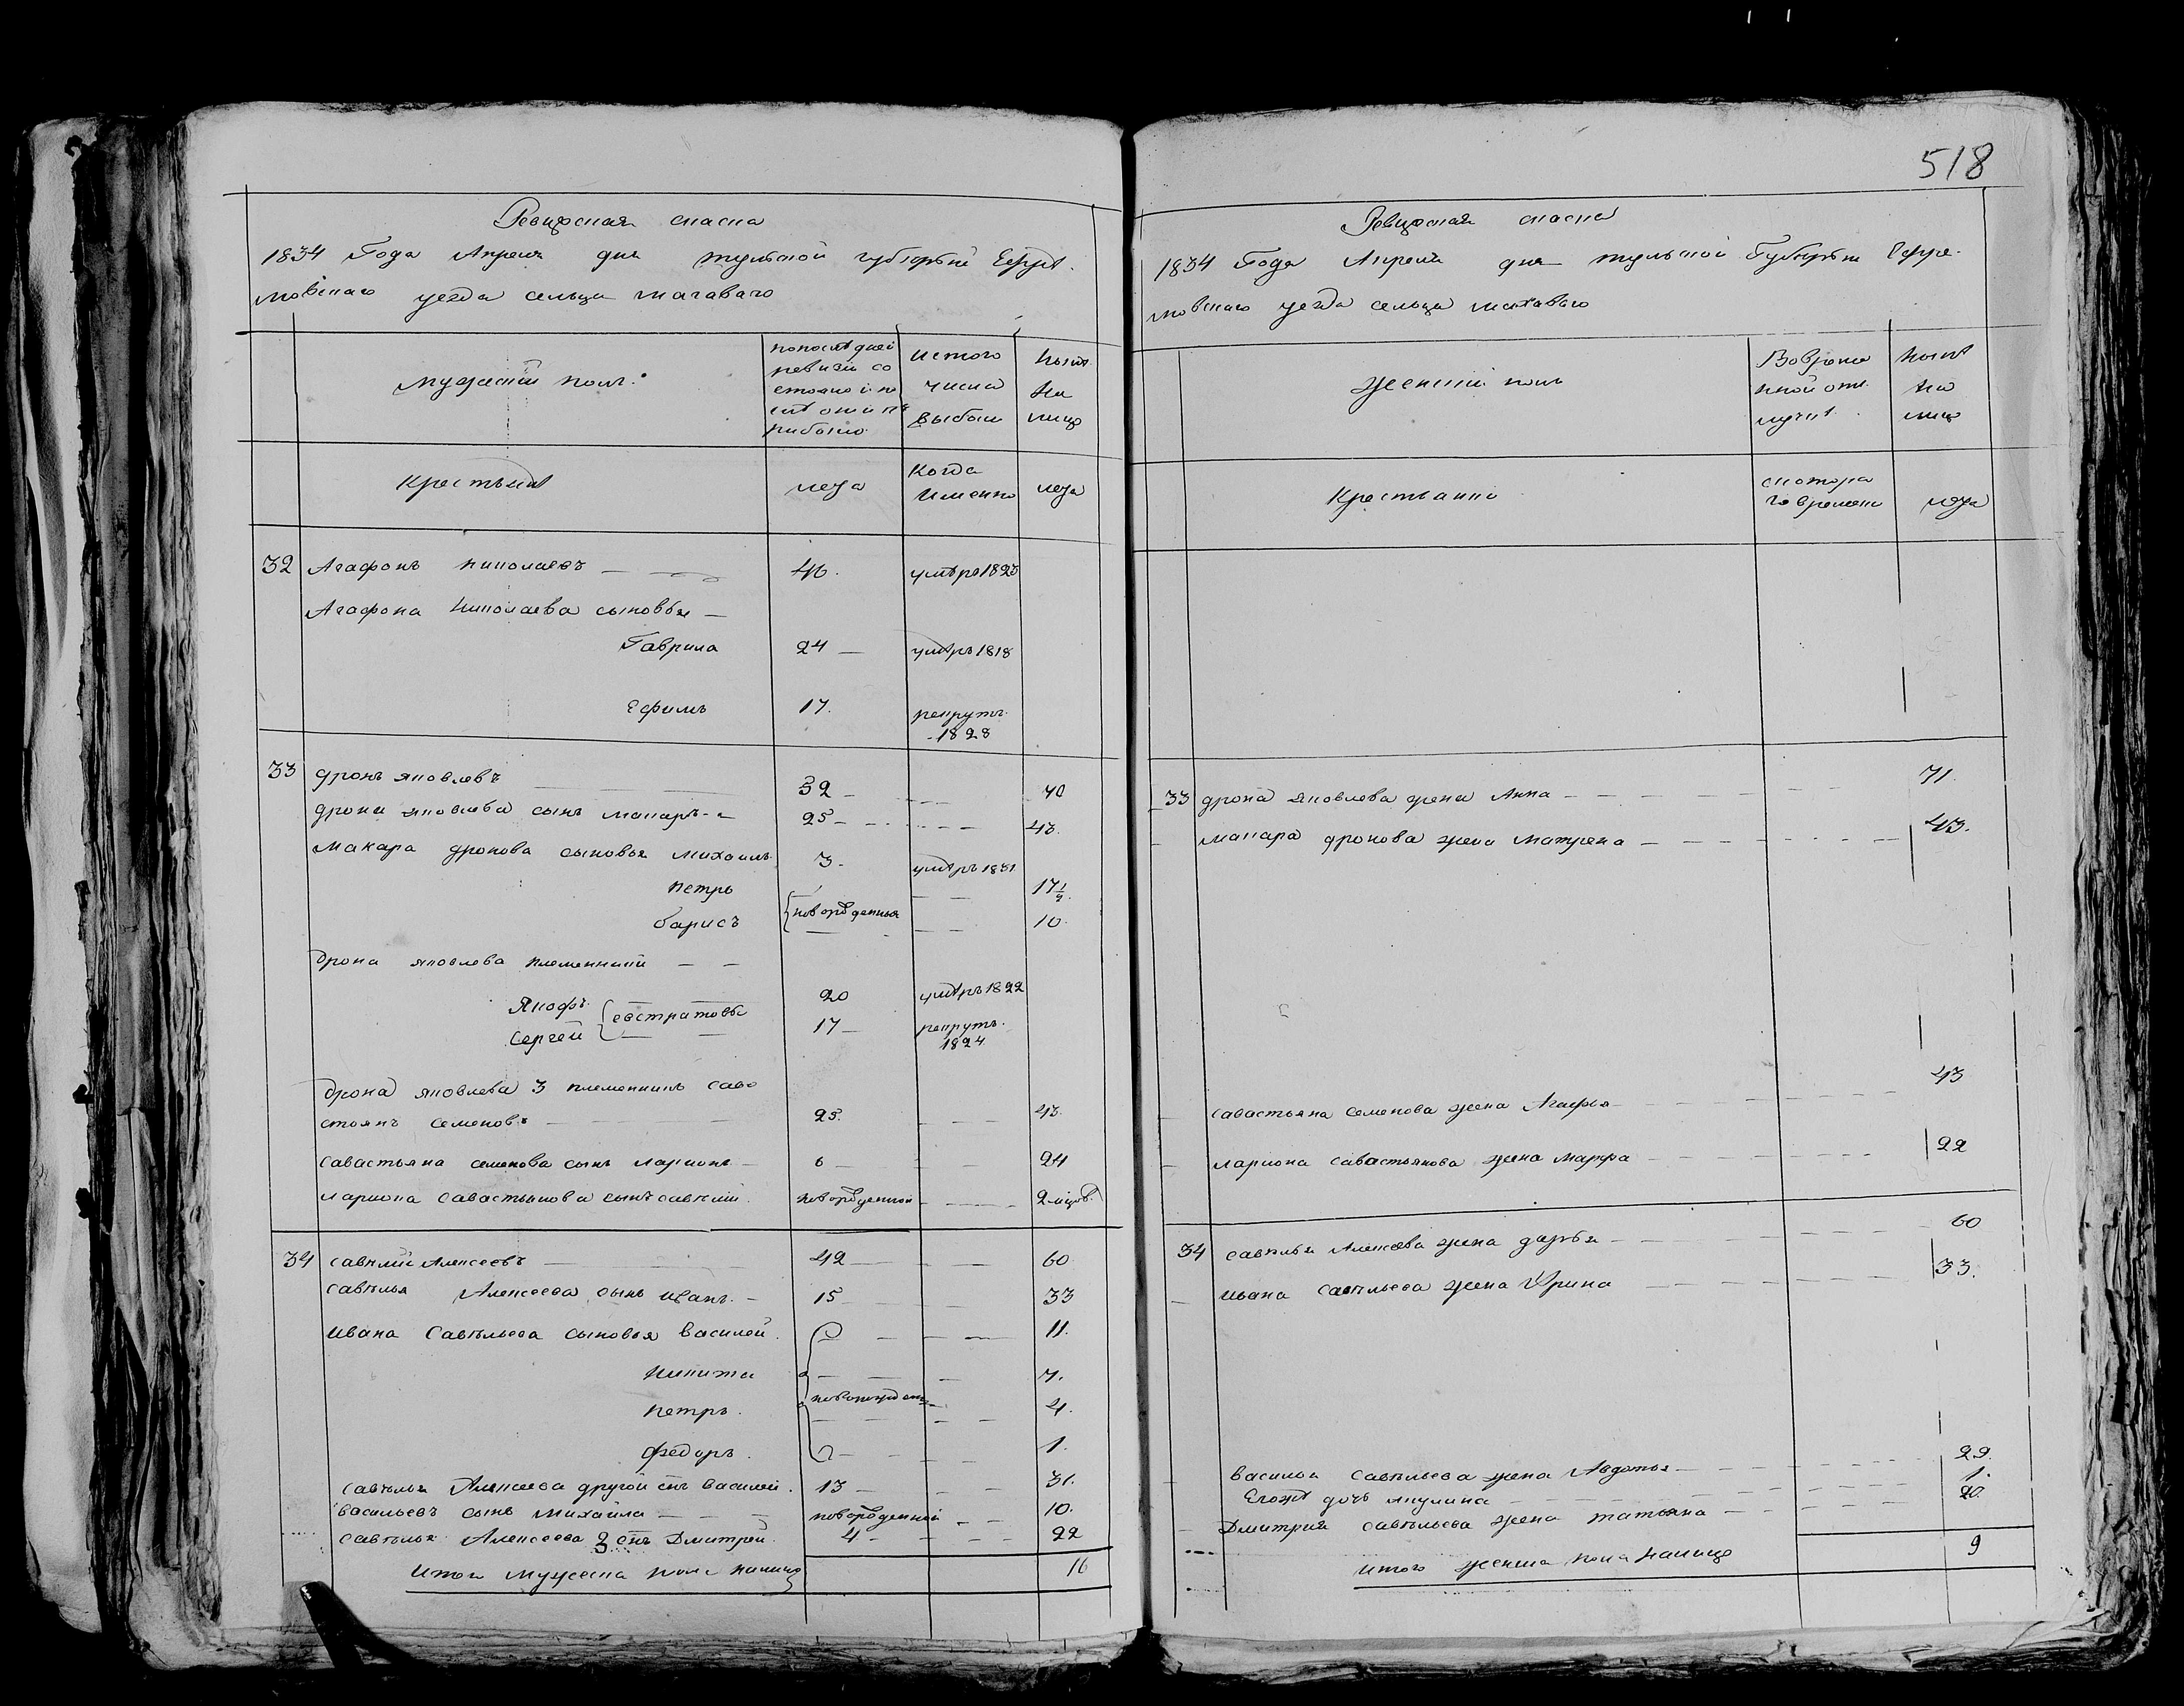 518
Ревизская сказка
1834 Года Апреля дня тульской губернии Ефре-
мовскаго уезда сельца
мужеский полъ.
по последней
ревизии со
стояло и по
сле оной п
рибыло
изтого
числа
выбыло
ныне
на
лицо
Крестьяне
лета
Когда
Именно
лета
32 Агафонъ николаевъ 46. умѣръ 1823
Агафона Николаева сыновья
Гаврила 24 умѣръ 1818
Ефимъ 17. рекрутъ
1828
33 дронъ яковлевъ 52
дрона яковлева сынъ макаръ 25 43.
Макара дронова сыновья михаилъ 3. умѣръ 1831
петръ 17½
барисъ новорожденныя 10.
дрона яковлева племенники
Якофъ 20 умѣръ 1822
Сергей евстратовы 17 рекрутъ
1824
дрона яковлева 3 племенникъ саво
стоянъ семеновъ 25. 43.
савастьяна семенова сынъ ларионъ 6 24
лариона савастьянова сынъ савелий новорожденной 2 мцов.
34 савѣлий Алексеевъ 42 60
савѣлья Алексеева сынъ иванъ. 15 33
ивана Савѣльева сыновья василей. 11.
никита 7.
новорожденыя
петръ. 4.
федоръ. 1.
савѣлья Алексеева другой снъ василей. 13 31.
васильевъ сынъ михайла новорожденной 10.
савѣлья Алексеева 3 снъ Дмитрей. 4 22
итого мужеска пола налицо 16
Ревизская сказка
1834 Года Апреля дня тульской Губернии Ефре-
мовскаго уезда сельца
женский полъ
Вовремя
нной отл
учке
ныне
на
лицо
Крестьянки
скотора
го времени
лета
33 дрона яковлева жена Анна 71
макара дронова жена матрена 43.
савастьяна семенова жена Агафья 43
лариона савастьянова жена марфа 22
34 савѣлья Алексеева жена дарья 60
ивана савѣльева жена Ирина 33.
василья савѣльева жена Авдотья 29.
Егожъ дочь акулина 1.
Дмитрия савѣльева жена татьяна 20.
итого женска пола налицо 9